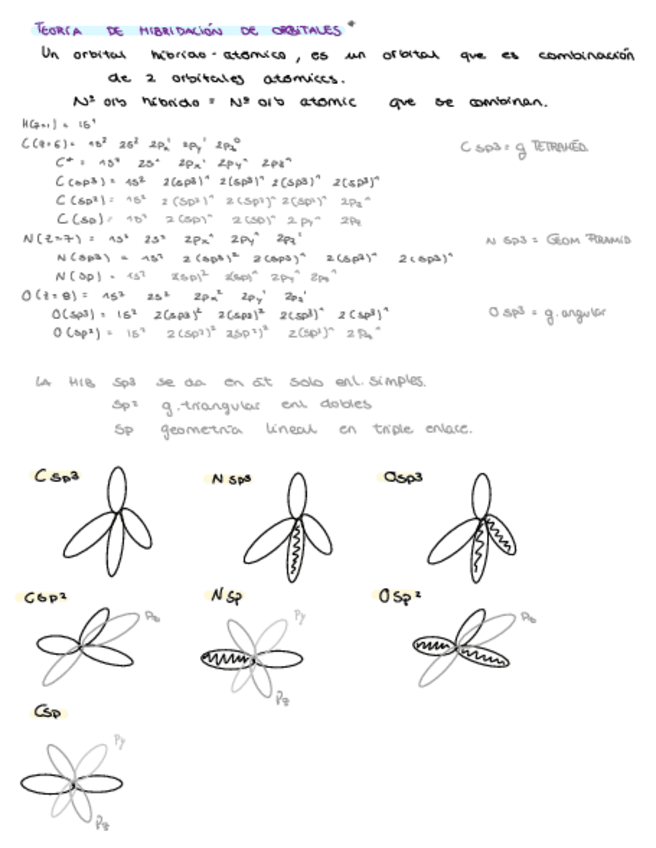 TEORÍA DE HIBRIDACIÓN DE ORBITALES *
Un orbital híbrido-atómico, es un orbital que es combinación
de 2 orbitales atómicos.
Nº orb híbrido = Nº orb atómic que se combinan.
H(z=1) = 1s¹
C(z=6) = 1s² 2s² 2px¹ 2py¹ 2pz⁰
C* = 1s² 2s¹ 2px¹ 2py¹ 2pz¹
C(sp3) = 1s² 2(sp3)¹ 2(sp3)¹ 2(sp3)¹ 2(sp3)¹
C sp3 = g TETRAHÉD
C(sp2) = 1s² 2(sp2)¹ 2(sp2)¹ 2(sp2)¹ 2pz¹
C(sp) = 1s² 2(sp)¹ 2(sp)¹ 2py¹ 2pz
N(z=7) = 1s² 2s² 2px¹ 2py¹ 2pz¹
N sp3 = GEOM PIRAMID
N(sp3) = 1s² 2(sp3)² 2(sp3)¹ 2(sp3)¹ 2(sp3)¹
N(sp) = 1s² 2(sp)² 2(sp)¹ 2py¹ 2pz¹
O(z=8) = 1s² 2s² 2px² 2py¹ 2pz¹
O(sp3) = 1s² 2(sp3)² 2(sp3)² 2(sp3)¹ 2(sp3)¹
O sp3 = g. angular
O(sp2) = 1s² 2(sp2)² 2(sp2)² 2(sp2)¹ 2pz¹
LA HIB sp3 se da en át solo enl. simples.
sp2 g. triangular enl dobles
sp geometría lineal en triple enlace.
C sp3
N sp3
O sp3
C sp2
N sp
O sp2
Py
Pz
C sp
Py
Pz